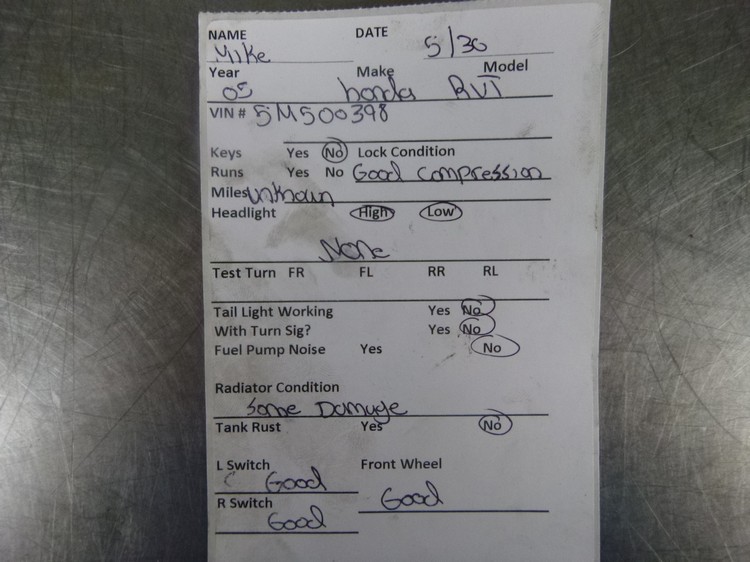 NAME DATE 5/30
Mike
Year Make Model
05 honda RVT
VIN # 5M500398
Keys Yes No Lock Condition
Runs Yes No Good compression
Miles unknown
Headlight High Low
None
Test Turn FR FL RR RL
Tail Light Working Yes No
With Turn Sig? Yes No
Fuel Pump Noise Yes No
Radiator Condition
Some Damage
Tank Rust Yes No
L Switch Front Wheel
Good Good
R Switch
Good